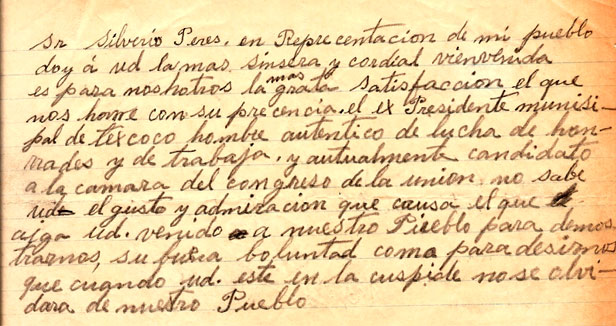 Sr Silverio Peres. en Reprecentacion de mi pueblo
doy á ud la mas sinsera y cordial vienvenida
es para noshotros la mas grata satisfaccion el que
nos honre con su precencia. el ex Presidente munisi-
pal de texcoco hombre autentico de lucha de hon-
rrades y de trabaja. y autualmente candidato
a la camara del congreso de la union no sabe
ud el gusto y admiracion que causa el que
aiga ud. venido a nuestro Pueblo para demos
trarnos, su buena boluntad coma para desirnos
que cuando ud. este en la cuspide no se olvi-
dara de nuestro Pueblo